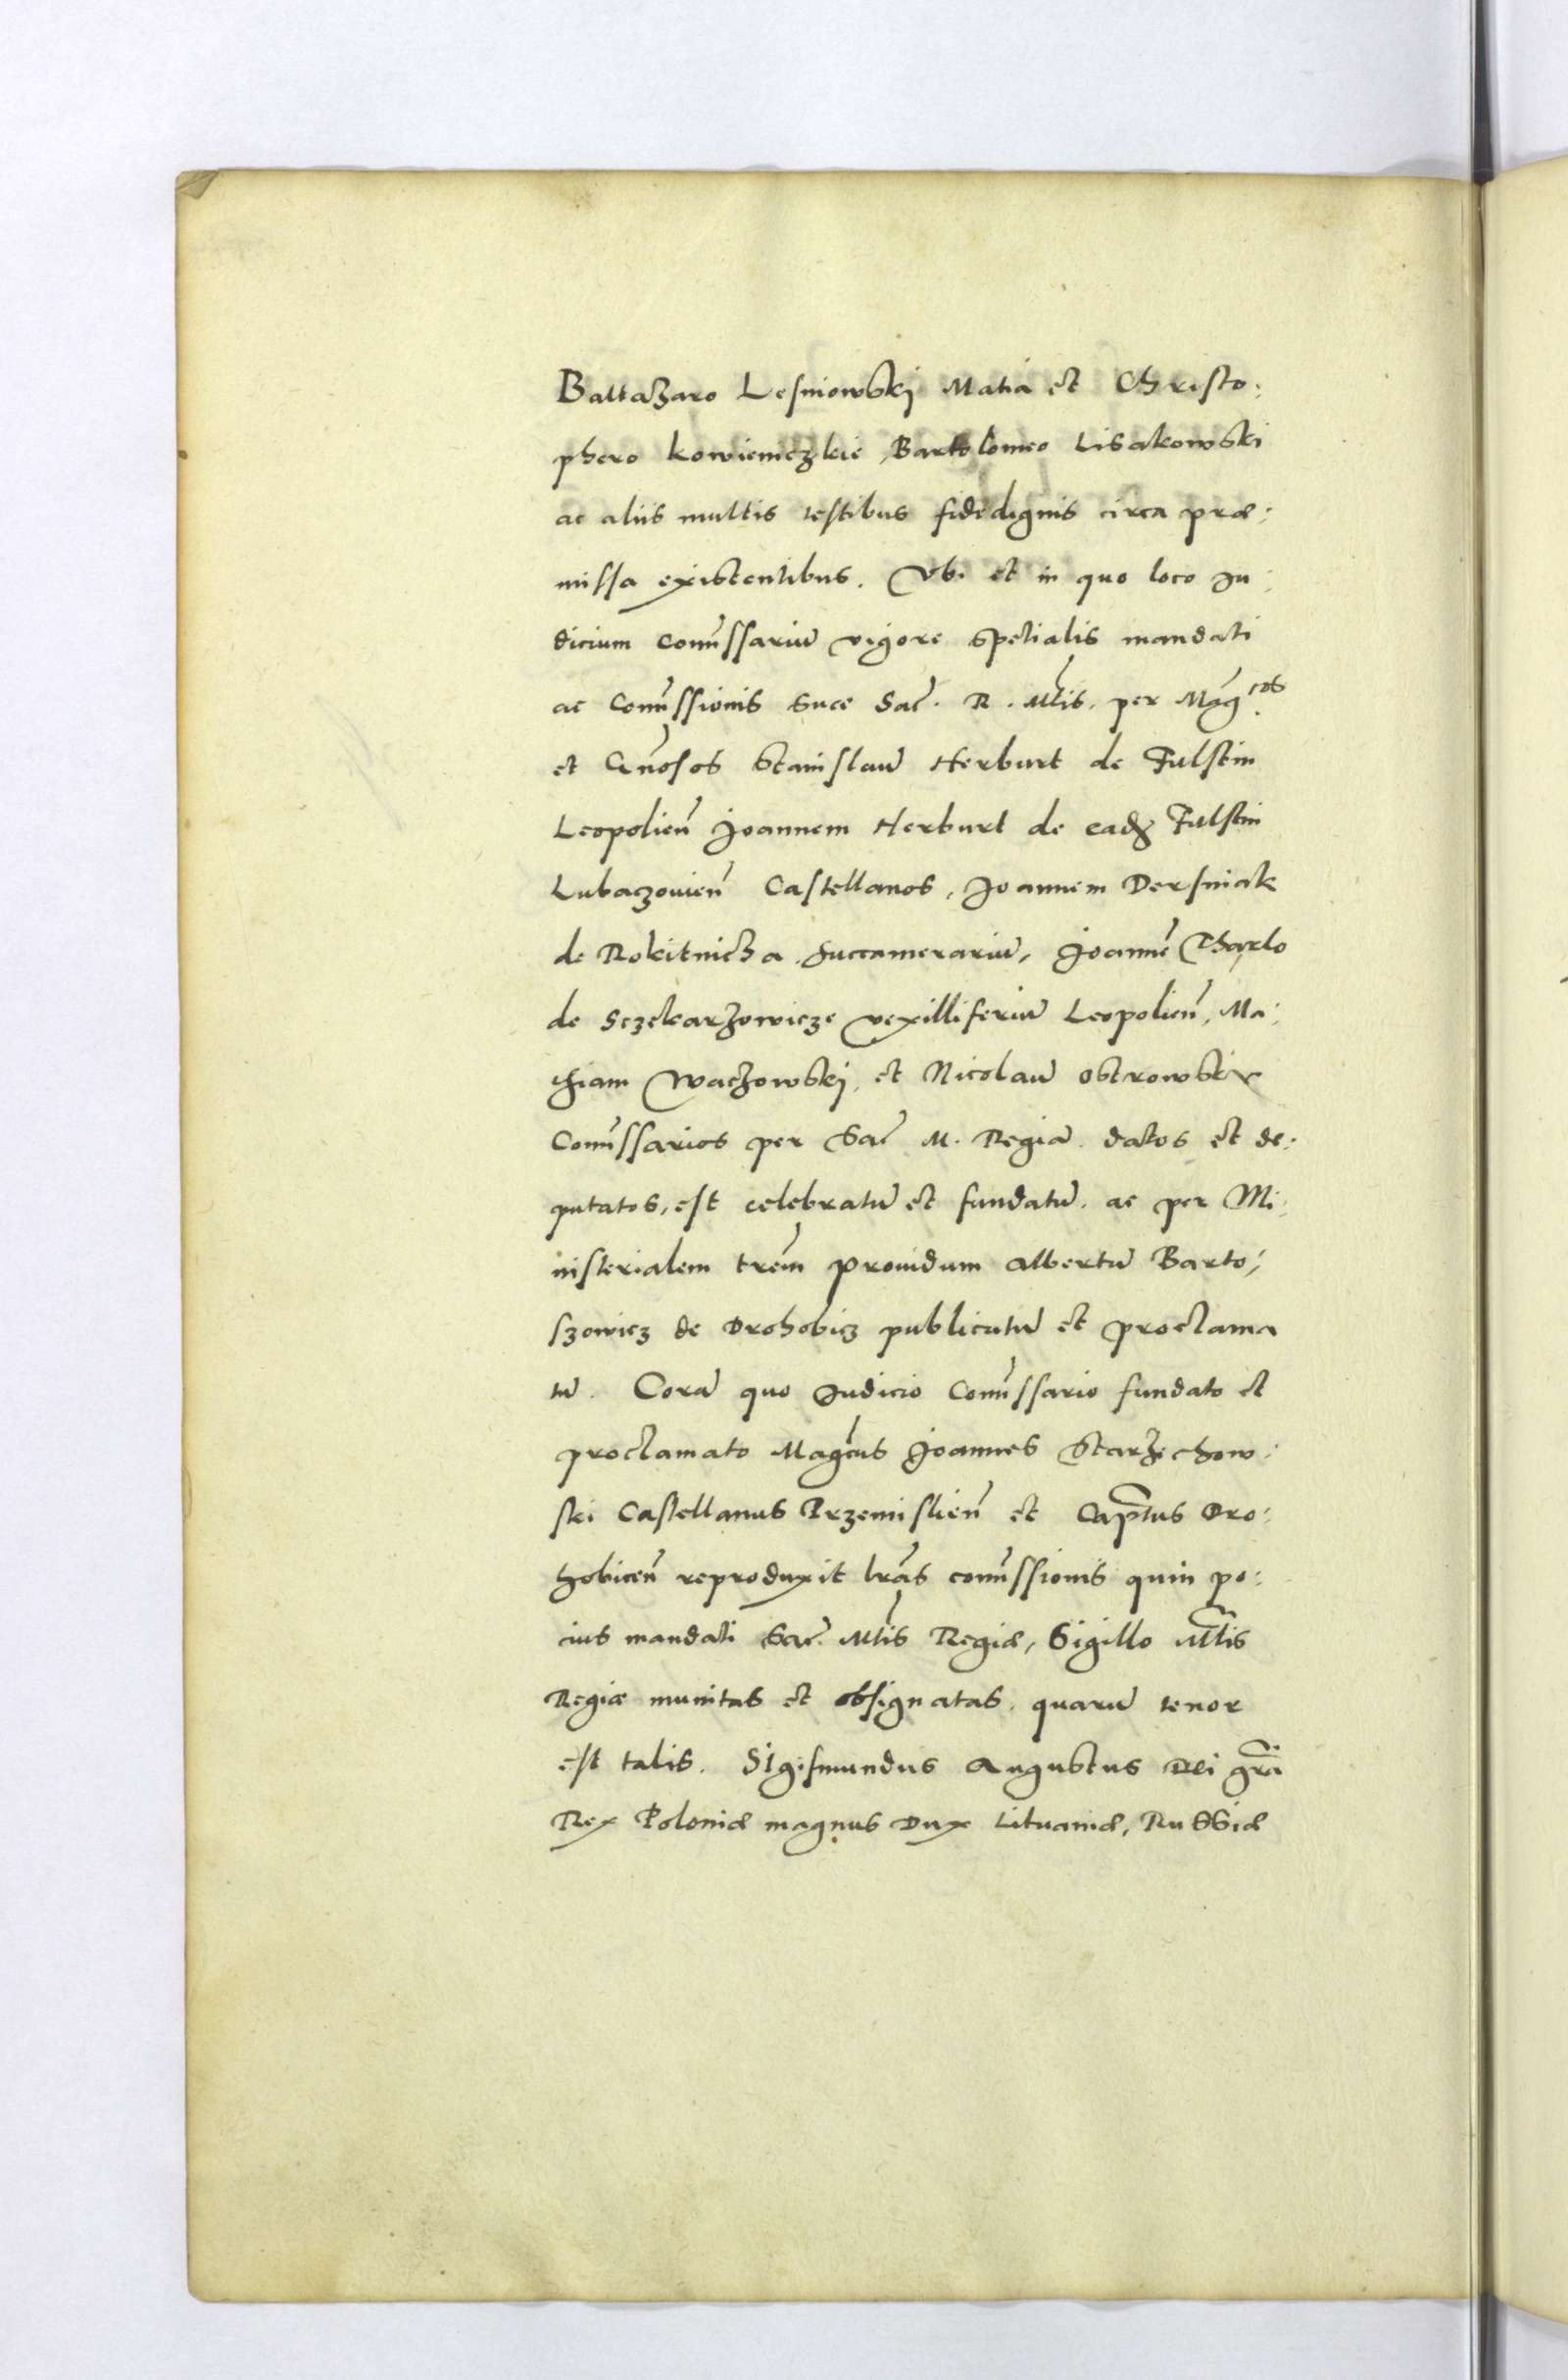 Baltazaro Lesniowskij Matia et Christo:
phero kowieniczkie, Bartolomeo Lisakowski
ac aliis multis testibus fidedignis circa præ:
missa existentibus. Vbi et in quo loco Ju:
dicium Com̃ssariũ vigore spetialis mandati
ac Com̃ssionis Suæ Sac̃. R. Mt̃is. per Mag̃cos
et Gñosos Stanislaũ Herburt de Fulstin
Leopolien̄ Joannem Herburt de eadꝫ Fulstin
Lubaczouien̄ Castellanos, Joannem Dersniak
de Rokitnicza Succamerariũ, Joannẽ Tharlo
de Sczekarzowicze vexilliferũ Leopolien̄, Ma:
thiam Waczowskij, et Nicolaũ Ostrowski
Com̃ssarios per Sac̃ M. Regiã datos et de:
putatos, est celebratũ et fundatũ. ac per Mi:
nisterialem trẽm prouidum Albertũ Barto/
szowicz de Drohobicz publicatũ et proclama
tũ. Corã quo Judicio Com̃ssario fundato et
proclamato Mag̃cus Joannes Starzechow:
ski Castellanus Przemislien̄ et Cap̃tus Dro:
hobicen̄ reproduxit lr̃as com̃ssionis quin po:
cius mandati Sac̃. Mt̃is Regiæ, Sigillo Mt̃is
Regiæ munitas et obsignatas. quarũ tenor
est talis. Sigismundus Augustus Dei gr̃a
Rex Poloniæ magnus Dux Lituaniæ, Russiæ